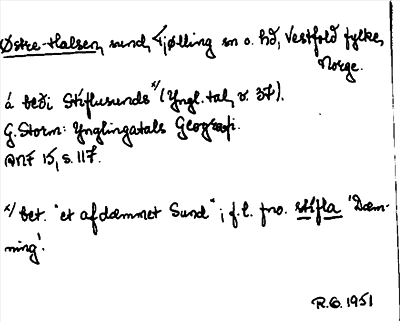 Østre-Halsen, sund, Tjølling sn o. hd, Vestfold fylke,
Norge.
á beði Stíflusunds x/ (Yngl. tal, v. 37).
G. Storm: Ynglingatals Geografi.
ANF 15, s. 117.
x/ bet. "et afdæmmet Sund"; f.l. fno. stífla 'Dæm-
ning'.
R.G. 1951